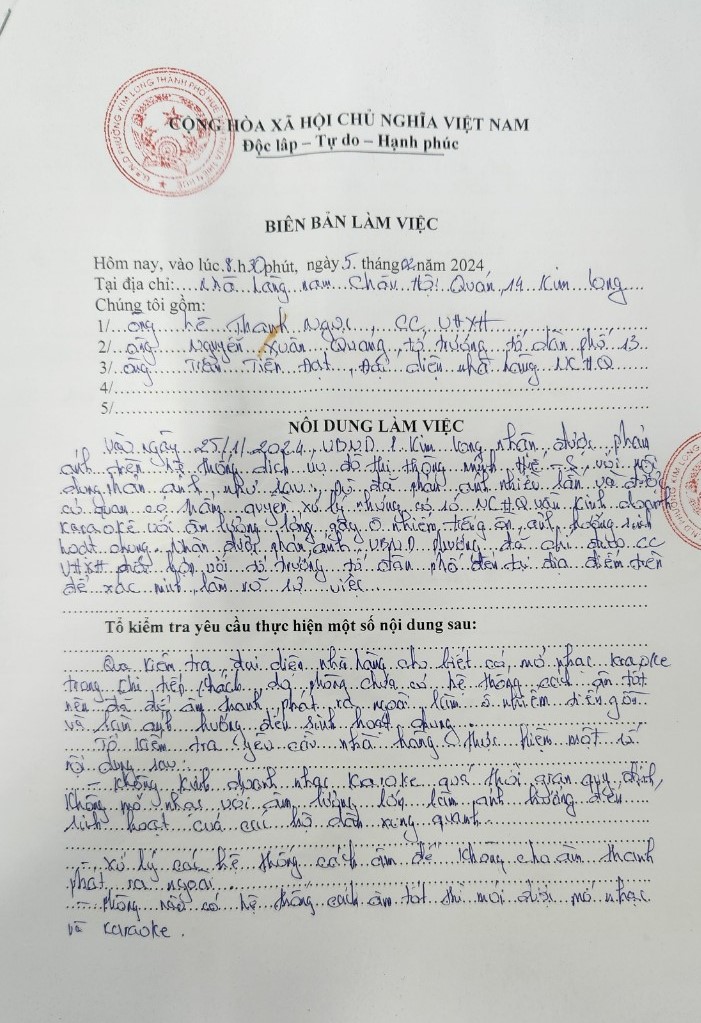 U.B.N.D PHƯỜNG KIM LONG THÀNH PHỐ HUẾ
CỘNG HÒA XÃ HỘI CHỦ NGHĨA VIỆT NAM
Độc lâp – Tự do – Hạnh phúc
BIÊN BẢN LÀM VIỆC
Hôm nay, vào lúc 8 h 30 phút, ngày 5 tháng 02 năm 2024
Tại địa chỉ: Nhà hàng nam Châu Hội Quán, 14 Kim Long
Chúng tôi gồm:
1/ ông Lê Thanh Ngọc, CC VHXH
2/ ông Nguyễn Xuân Quang, tổ trưởng tổ dân phố 13
3/ ông Trần Tiến Đạt, Đại diện nhà hàng NCHQ
4/
5/
NÔI DUNG LÀM VIỆC
Vào ngày 25/1/2024, UBND P. Kim Long nhận được phản
ánh trên hệ thống dịch vụ đô thị thông minh, Hue-S, với nội
dung phản ánh như sau: đã phản ánh nhiều lần và được
cơ quan có thẩm quyền xử lý nhưng cơ sở NCHQ vẫn kinh doanh
Karaoke với âm lượng lớn gây ô nhiễm tiếng ồn, ảnh hưởng sinh
hoạt chung. Nhận được phản ánh UBND phường đã chỉ đạo CC
VHXH phối hợp với tổ trưởng tổ dân phố đến tại địa điểm trên
để xác minh, làm rõ vụ việc
Tổ kiểm tra yêu cầu thực hiện một số nội dung sau:
Qua kiểm tra, đại diện nhà hàng cho biết có mở nhạc karaoke
trong khi tiếp khách do phòng chưa có hệ thống cách âm tốt
nên đã để âm thanh phát ra ngoài làm ô nhiễm tiếng ồn
và làm ảnh hưởng đến sinh hoạt chung
Tổ kiểm tra yêu cầu nhà hàng thực hiện một số
nội dung sau:
- Không kinh doanh nhạc karaoke quá thời gian quy định,
không mở nhạc với âm lượng lớn làm ảnh hưởng đến
sinh hoạt của các hộ dân xung quanh
- Xử lý các hệ thống cách âm để không cho âm thanh
phát ra ngoài
- Phòng nào có hệ thống cách âm tốt thì mới được mở nhạc
và karaoke.